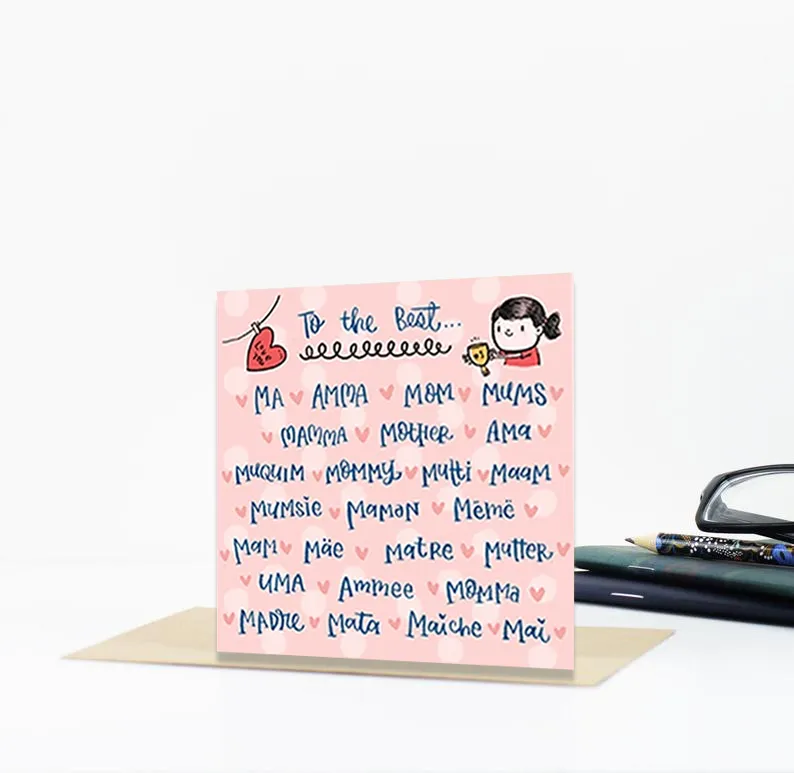 To the Best...
LOVE YOU
#1
MA AMMA MOM MUMS
MAMMA MOTHER AMA
MUQUIM MOMMY Mutti MAAM
MUMSIE MAMAN Mëmë
MAM Mäe MATRE MUTTER
UMA Ammee MOMMA
MADRE Mata Maiche Mai